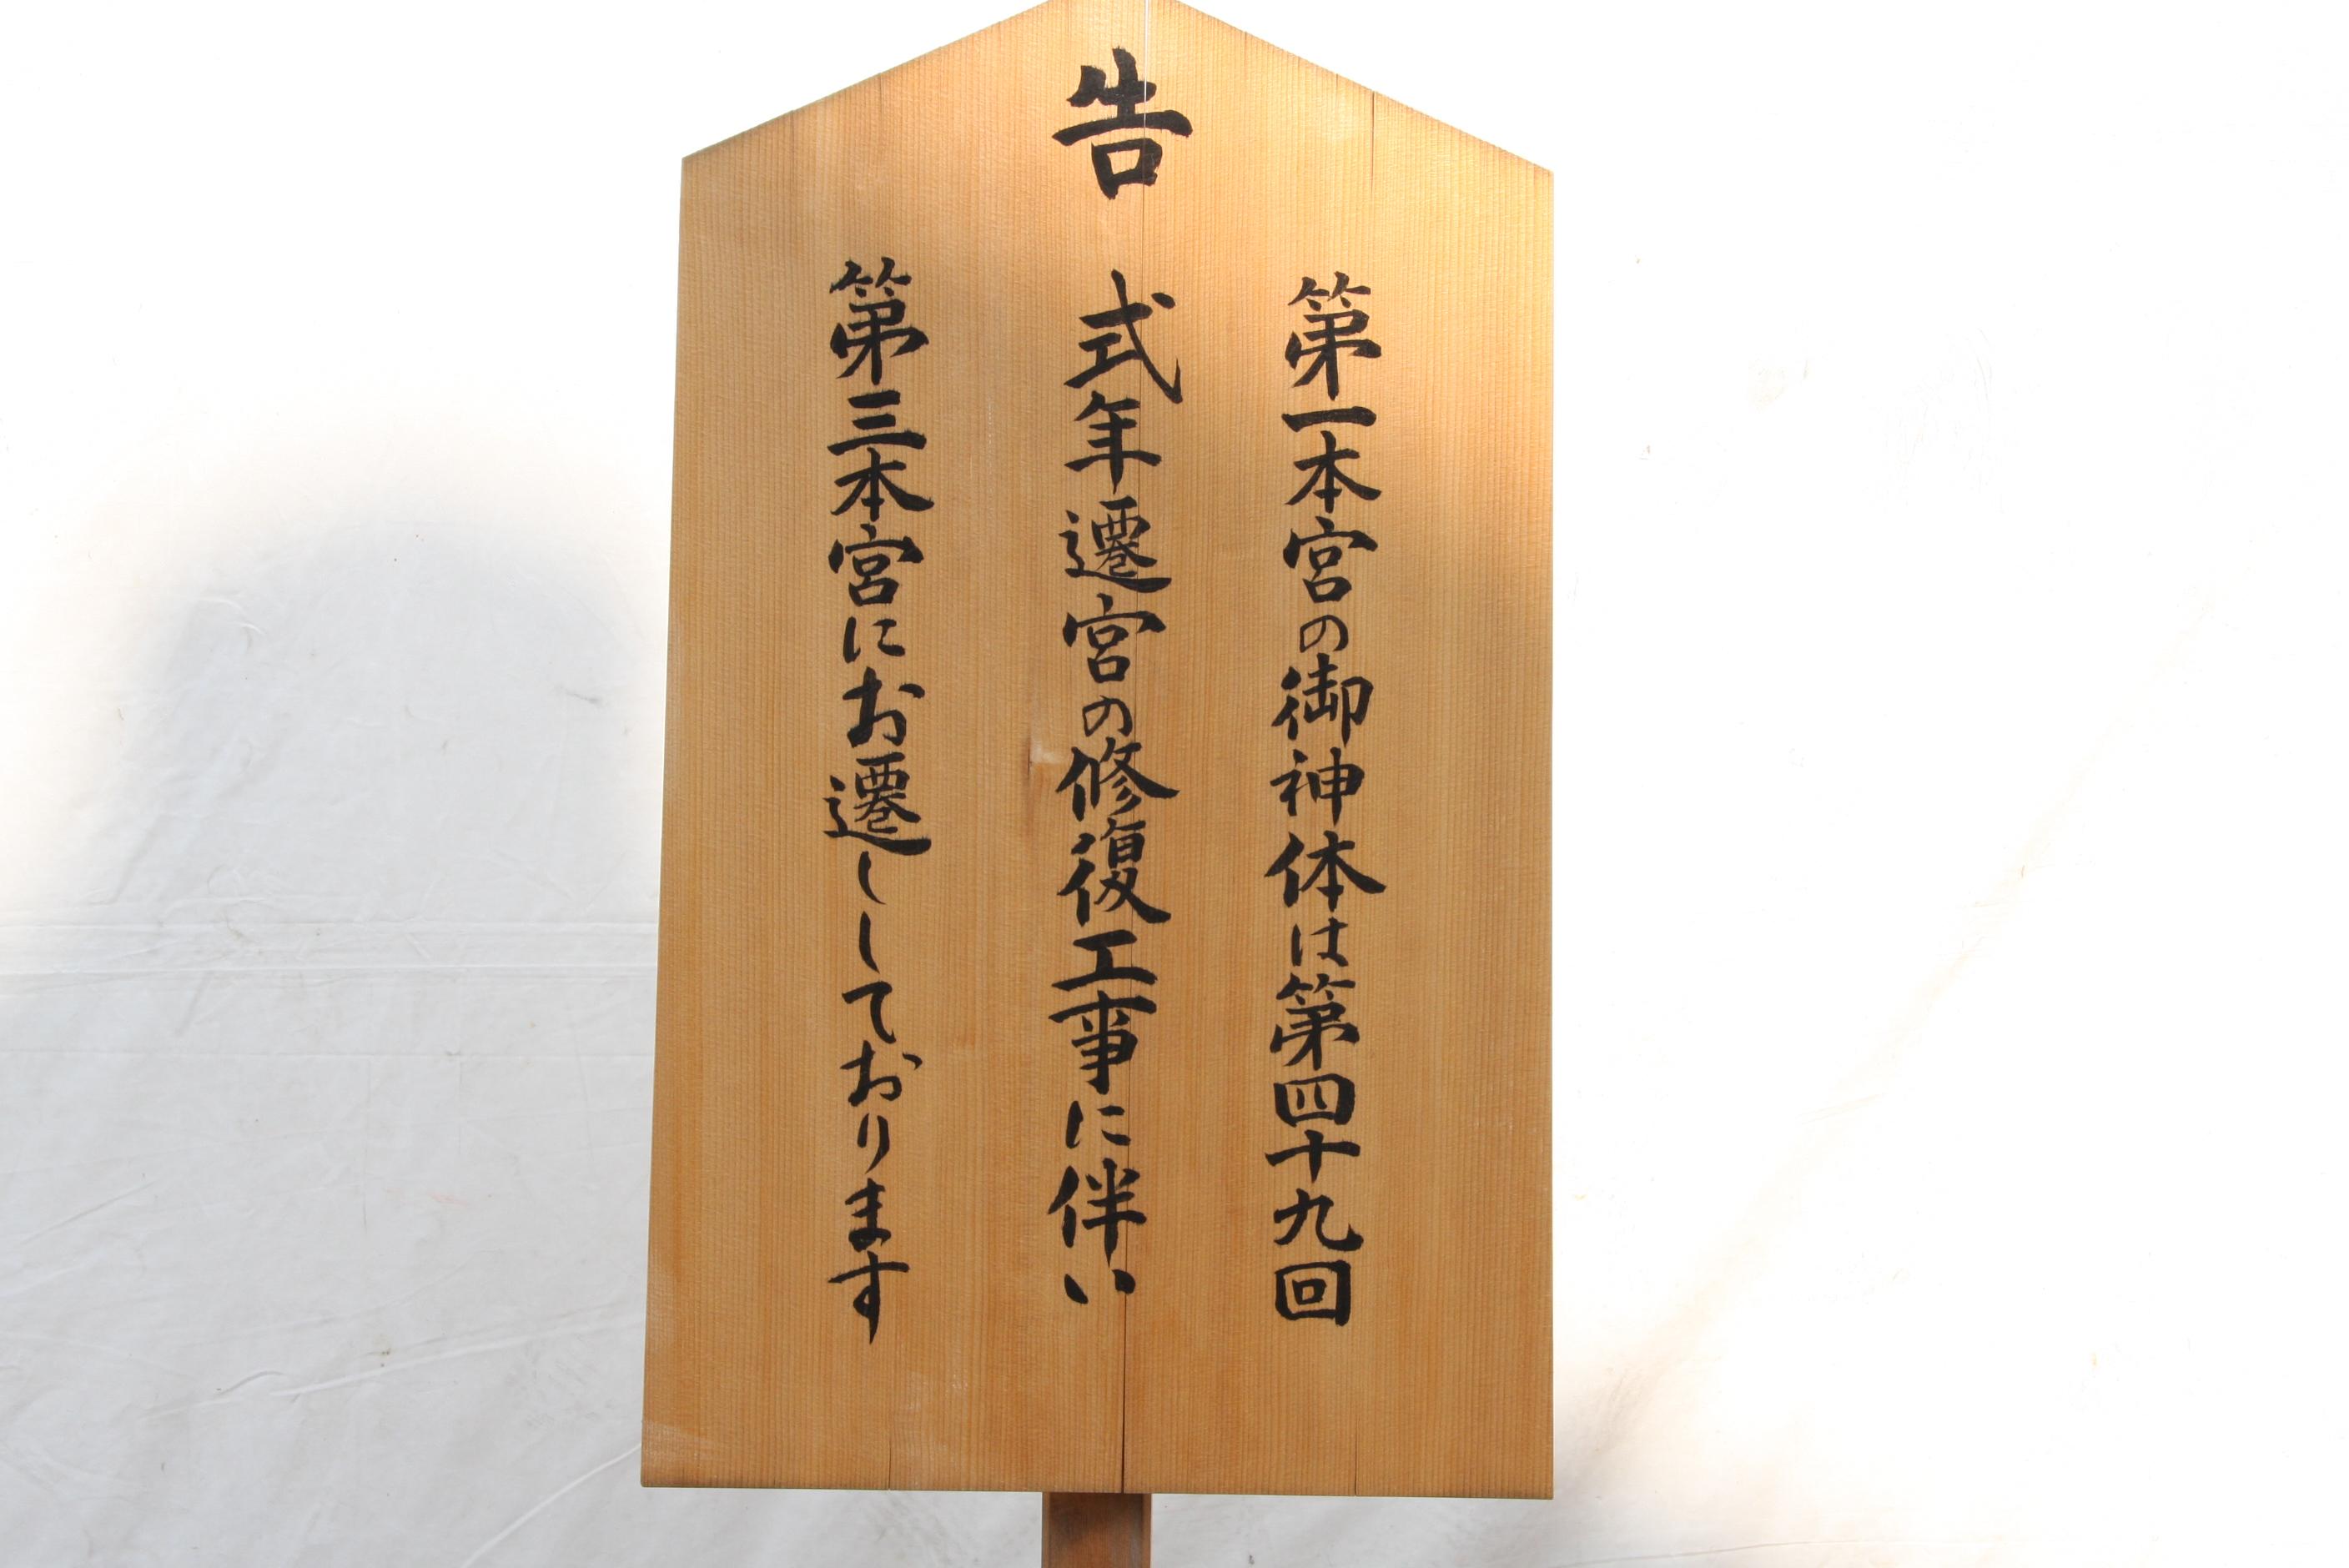 告
第一本宮の御神体は第四十九回
式年遷宮の修復工事に伴い
第三本宮にお遷ししております